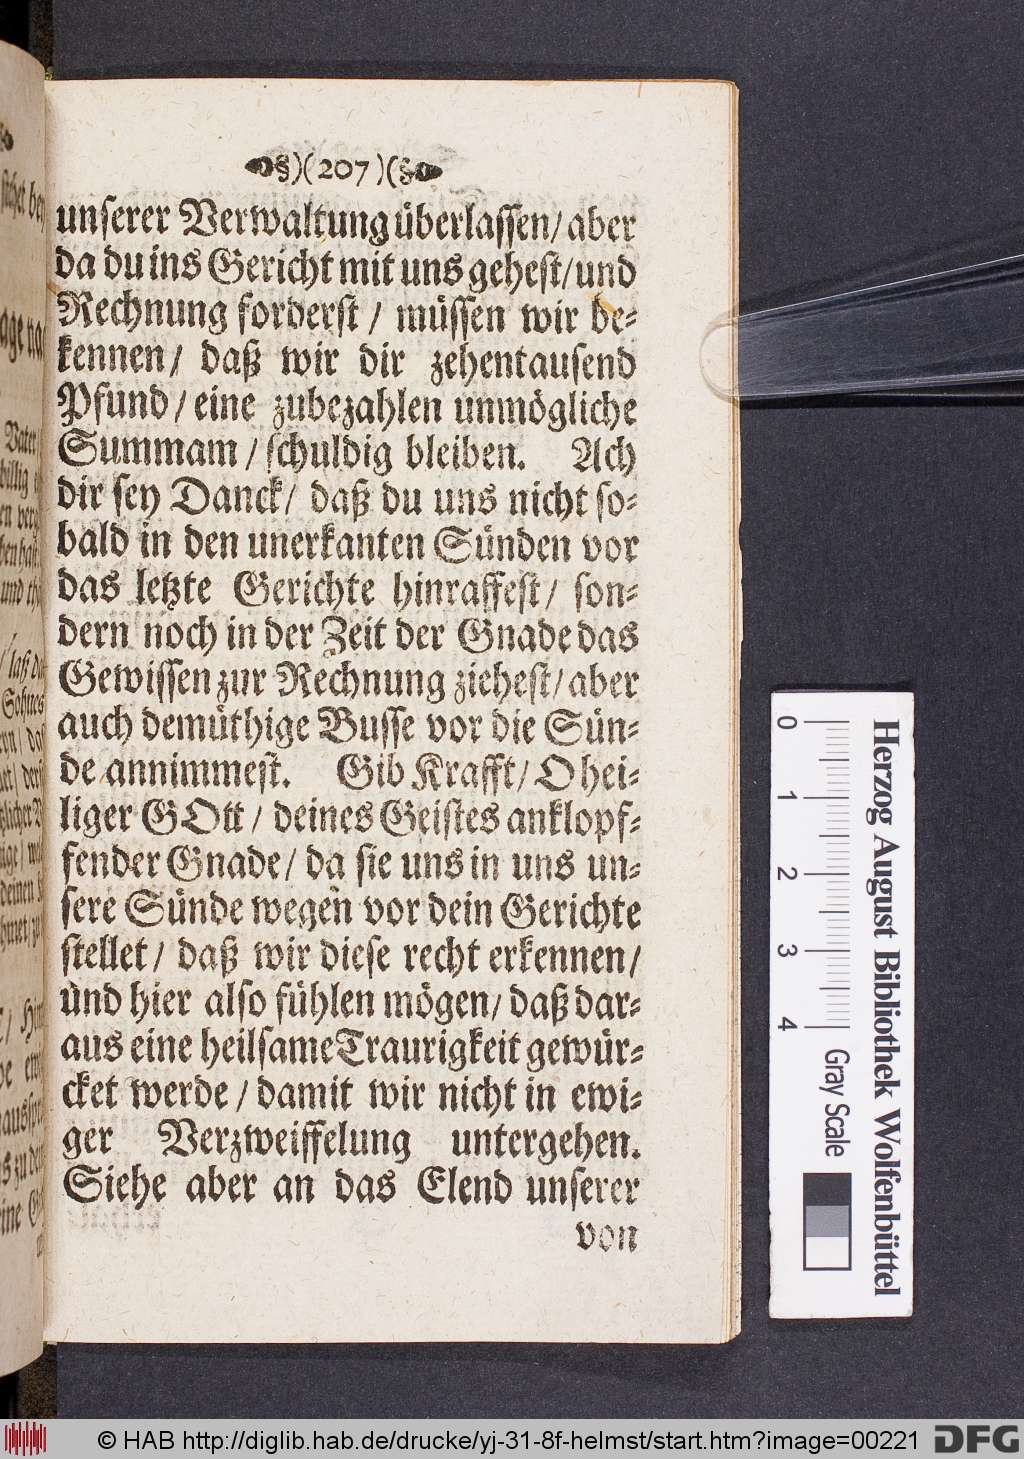 §)(207)(§
unserer Verwaltung überlassen/ aber
da du ins Gericht mit uns gehest/ und
Rechnung forderst / müssen wir be-
kennen/ daß wir dir zehentausend
Pfund/ eine zubezahlen unmögliche
Summam / schuldig bleiben. Ach
dir sey Danck/ daß du uns nicht so-
bald in den unerkanten Sünden vor
das letzte Gerichte hinraffest/ son-
dern noch in der Zeit der Gnade das
Gewissen zur Rechnung ziehest/ aber
auch demüthige Busse vor die Sün-
de annimmest. Gib Krafft/ O hei-
liger GOtt / deines Geistes anklopf-
fender Gnade/ da sie uns in uns un-
sere Sünde wegen vor dein Gerichte
stellet/ daß wir diese recht erkennen/
und hier also fühlen mögen/ daß dar-
aus eine heilsame Traurigkeit gewür-
cket werde / damit wir nicht in ewi-
ger Verzweiffelung untergehen.
Siehe aber an das Elend unserer
von
Herzog August Bibliothek Wolfenbüttel
0 1 2 3 4 Gray Scale
© HAB http://diglib.hab.de/drucke/yj-31-8f-helmst/start.htm?image=00221
DFG